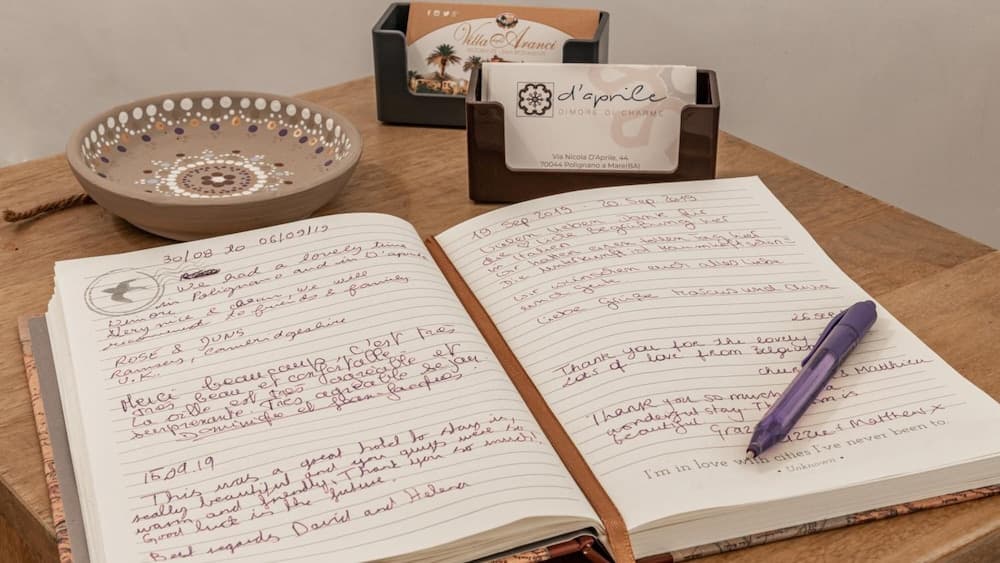 Villa Aranci
d'aprile
DIMORE DI CHARME
Via Nicola D'Aprile, 44
70044 Polignano a Mare(BA)
30/08 to 06/09/19
We had a lovely time
in Polignano and in D'aprile
Dimore.
Very nice & clean. We will
recommend to friends & family
ROSE &
Ramsey, Cambridgeshire
U.K.
Merci beaucoup, c'est très
très beau et confortable.
La ville est très agréable et
surprenante. Très agréable séjour
Dominique et Jean-Jacques!
15.09.19
This was a great hotel to stay in,
really beautiful and you guys were so
warm and friendly. Thank you so much!
Good luck in the future.
Best regards David and Helena
19 Sep 2019 - 20 Sep 2019
Vielen lieben Dank für
die liebe Begrüßung
in Italien
Wir hatten einen tollen
Die Unterkunft ist
Wir wünschen euch alles Liebe
und Gute
Liebe Grüße Marcus und
26 sep
Thank you for the lovely
Lots of love from Belgium
Matthieu
Thank you so much
wonderful stay The is
beautiful & Matthew x
I'm in love with cities I've never been to.
• Unknown •